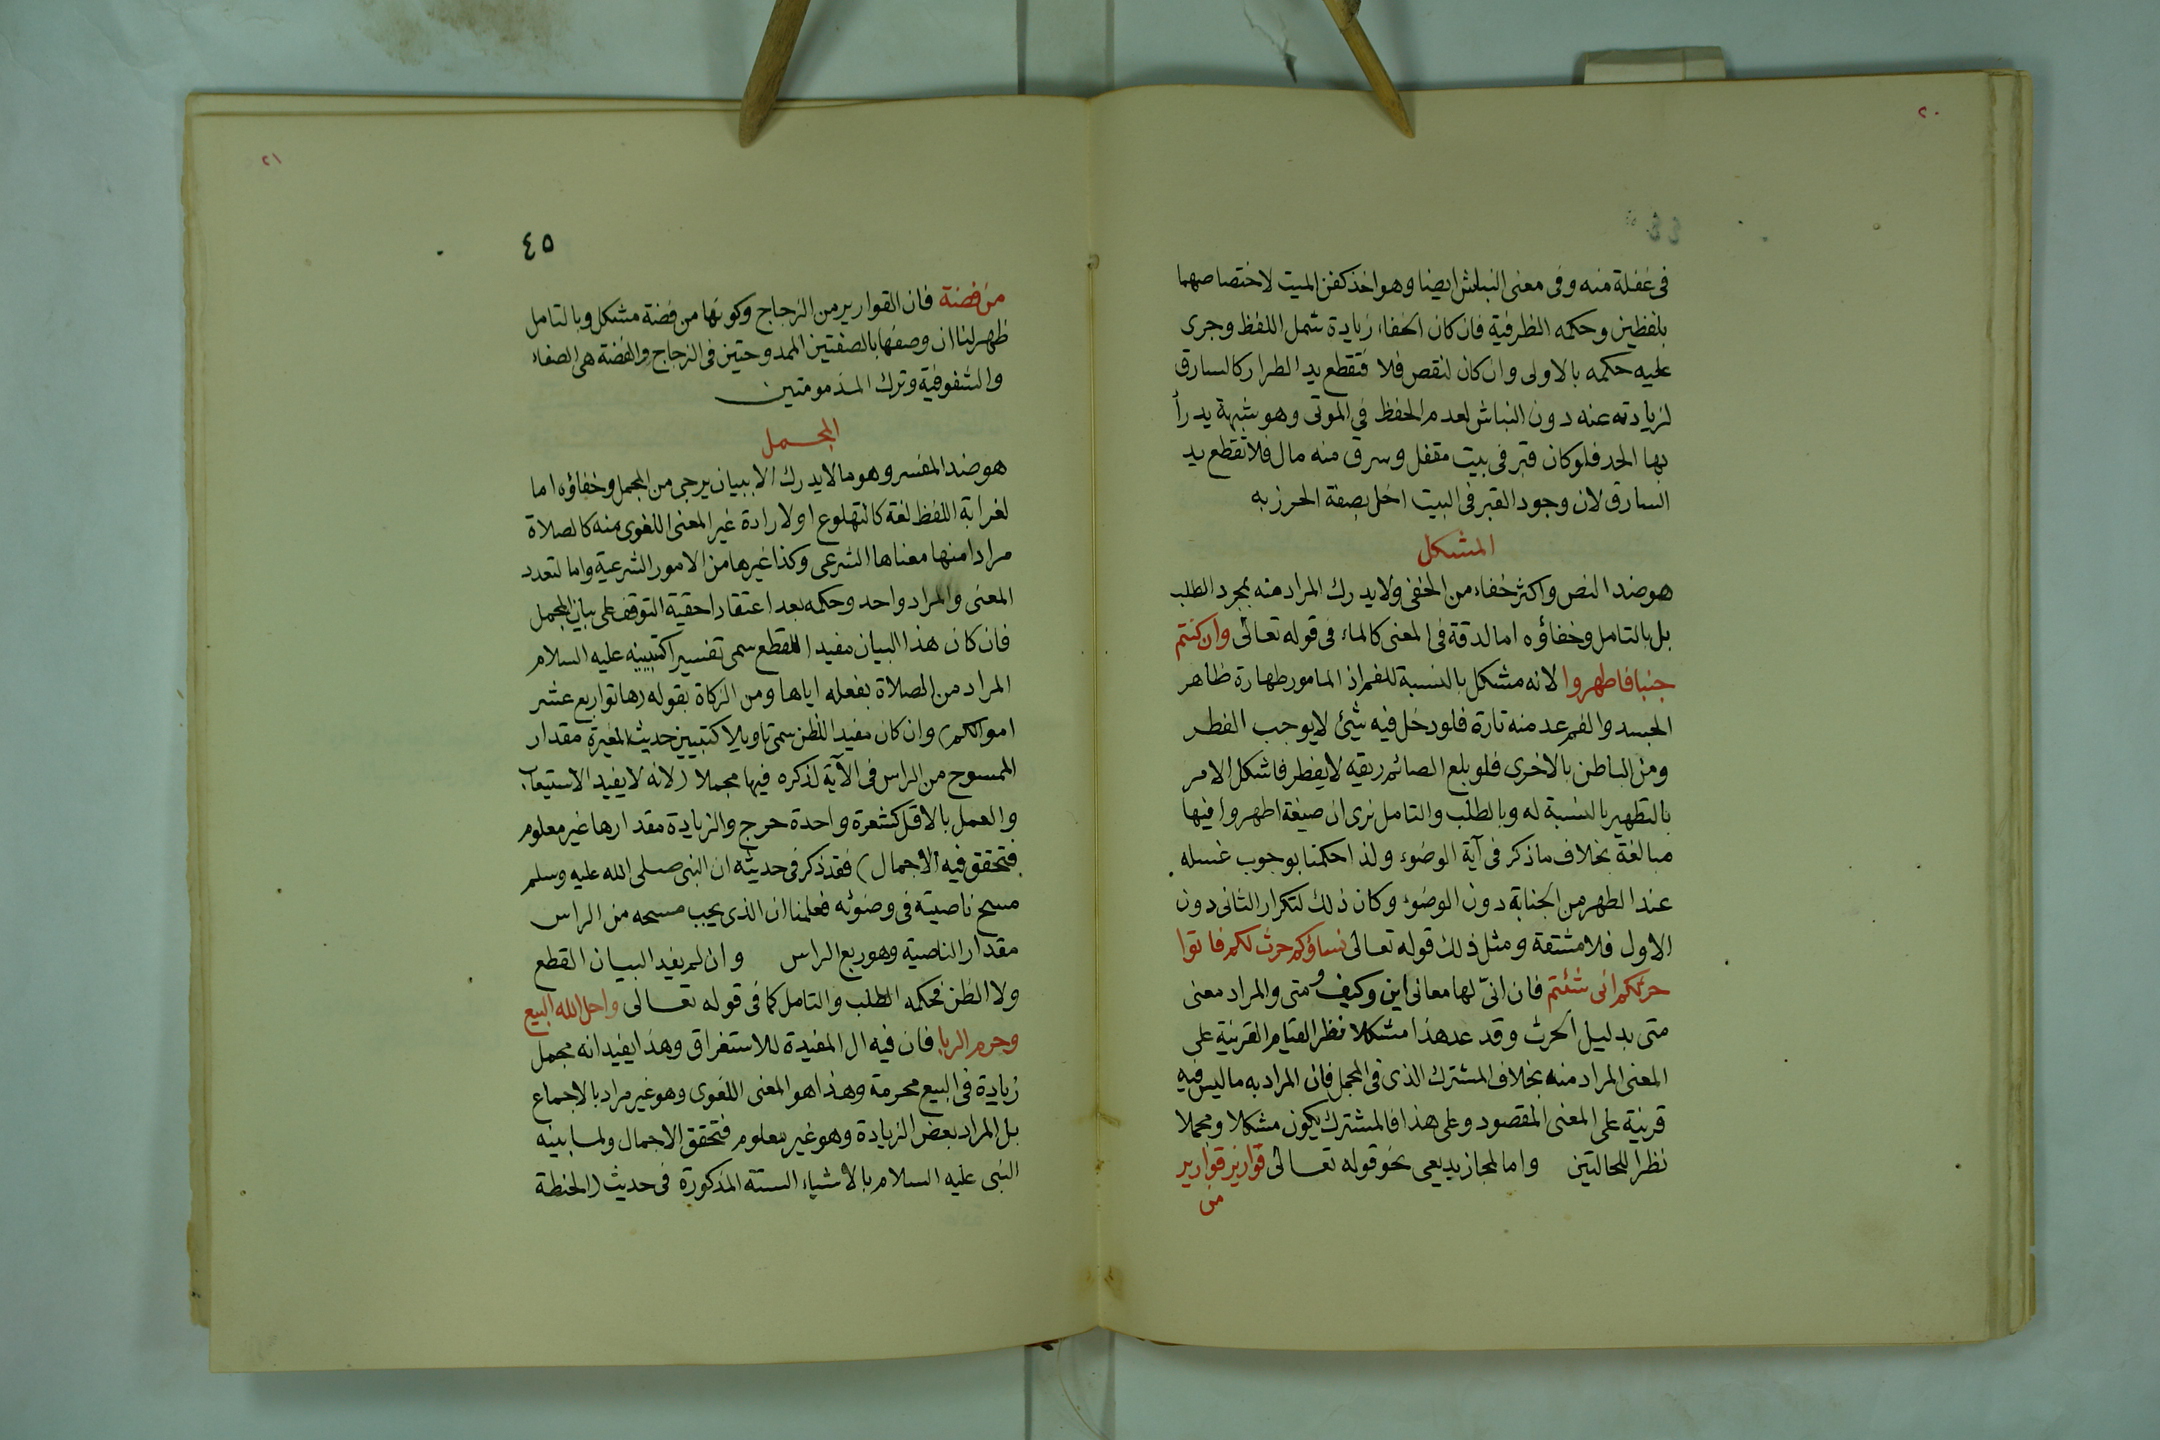 ٢٠
٤٤
فى غفلة منه وفى معنى النباش ايضا وهو اخذ كفن الميت لاختصاصهما
بلفظين وحكمه الظرفية فان كان الخفاء زيادة شمل اللفظ وجرى
عليه حكمه بالاولى وان كان لنقص فلا فتقطع يد الطرار كالسارق
لزيادته عنه دون النباش لعدم الحفظ في الموتى وهو شبهة يدرأ
بها الحد فلو كان قبر فى بيت مقفل وسرق منه مال فلا تقطع يد
السارق لان وجود القبر فى البيت اخل بصفة الحرز به
المشكل
هو ضد النص واكثر خفاء من الخفى ولا يدرك المراد منه بمجرد الطلب
بل بالتامل وخفاؤه اما لدقة فى المعنى كالماء فى قوله تعالى وان كنتم
جنبا فاطهروا لانه مشكل بالنسبة للفم اذ المامور طهارة ظاهر
الجسد والفم عد منه تارة فلو دخل فيه شيئ لا يوجب الفطر
ومن الباطن بالاخرى فلو بلع الصائم ريقه لا يفطر فاشكل الامر
بالتطهير بالنسبة له وبالطلب والتامل نرى ان صيغة اطهروا فيها
مبالغة بخلاف ما ذكر فى آية الوضوء ولذا حكمنا بوجوب غسله
عند الطهر من الجنابة دون الوضوء وكان ذلك لتكرار الثانى دون
الاول فلا مشتقة ومثل ذلك قوله تعالى نساؤكم حرث لكم فاتوا
حرثكم انى شئتم فان انىّ لها معانى اين وكيف ومتى والمراد معنى
متى بدليل الحرث وقد عد هذا مشكلا نظرا لقيام القرنية على
المعنى المراد منه بخلاف المشترك الذى فى المجمل فان المراد به ما ليس فيه
قرنية على المعنى المقصود وعلى هذا فالمشترك يكون مشكلا ومجملا
نظرا للحالتين واما لمجاز بديعى نحو قوله تعالى قوارير قوارير
من
٢١
٤٥
من فضة فان القوارير من الزجاج وكونها من فضة مشكل وبالتامل
ظهر لنا ان وصفها بالصفتين الممدوحتين فى الزجاج والفضة هى الصفاء
والشفوفية وترك المذمومتين
المجمل
هو ضد المفسر وهو ما لا يدرك الا ببيان يرجى من المجمل وخفاؤه اما
لغرابة اللفظ لغة كالتهلوع او لارادة غير المعنى اللغوى منه كالصلاة
مرادا منها معناها الشرعى وكذا غيرها من الامور الشرعية واما لتعدد
المعنى والمراد واحد وحكمه بعد اعتقاد احقية التوقف على بيان المجمل
فان كان هذا البيان مفيدا للقطع سمى تفسيرا كتبيينه عليه السلام
المراد من الصلاة بفعله اياها ومن الزكاة بقوله (هاتوا ربع عشر
اموالكم) وان كان مفيدا للظن سمى تاويلا كتبيين حديث المغيرة مقدار
الممسوح من الراس فى الآية لذكره فيها مجملا (لانه لا يفيد الاستيعاب
والعمل بالاقل كشعرة واحدة حرج والزيادة مقدارها غير معلوم
فتحقق فيه الاجمال) فقد ذكر فى حديثه ان النبى صلى الله عليه وسلم
مسح ناصيته فى وضوئه فعلمنا ان الذى يجب مسحه من الراس
مقدار الناصية وهو ربع الراس وان لم يفيد البيان القطع
ولا الظن فحكمه الطلب والتامل كما فى قوله تعالى واحل الله البيع
وحرم الربا فان فيه ال المفيدة للاستغراق وهذا يفيد انه مجمل
زيادة فى البيع محرمة وهذا هو المعنى اللغوى وهو غير مراد بالاجماع
بل المراد بعض الزيادة وهو غير معلوم فتحقق الاجمال ولما بينه
النبى عليه السلام بالاشياء الستة المذكورة فى حديث (الحنطة